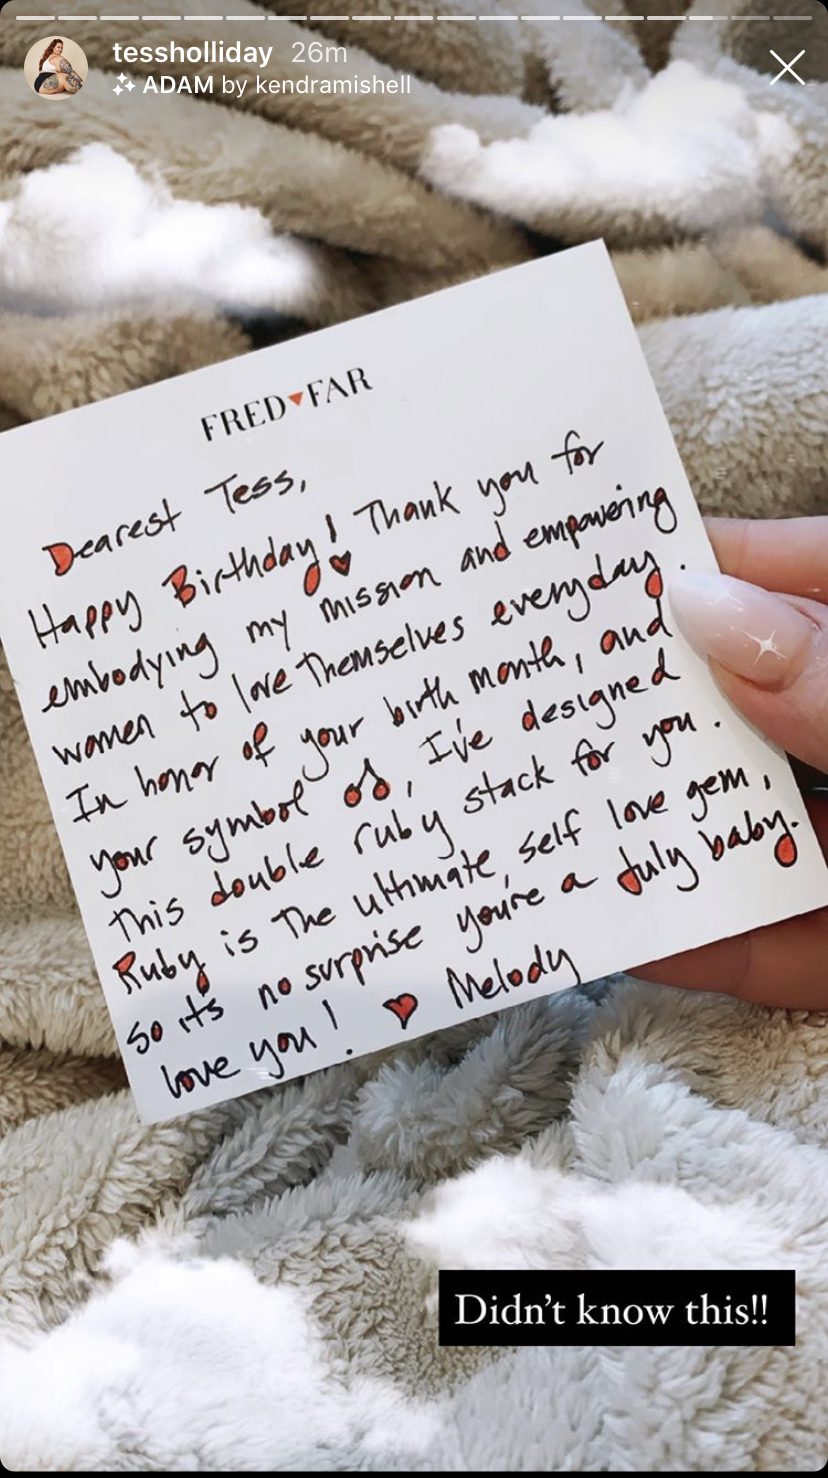 tessholliday 26m
ADAM by kendramishell
FRED FAR
Dearest Tess,
Happy Birthday! Thank you for
embodying my mission and empowering
women to love themselves everyday.
In honor of your birth month, and
your symbol, I've designed
this double ruby stack for you.
Ruby is the ultimate self love gem,
so it's no surprise you're a July baby.
love you! Melody
Didn't know this!!